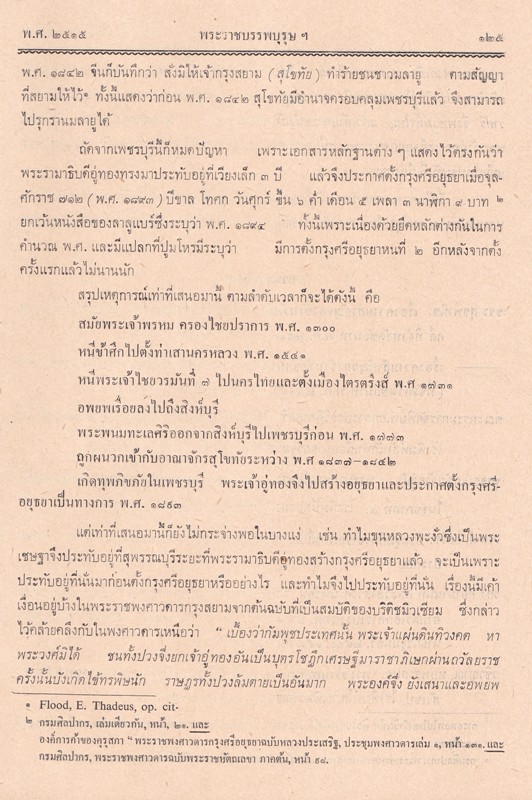 พ.ศ. ๒๕๑๕ พระราชบรรพบุรุษ ฯ ๑๒๕
พ.ศ. ๑๘๔๒ จีนก็บันทึกว่า สั่งมิให้เจ้ากรุงสยาม (สุโขทัย) ทำร้ายชนชาวมลายู ตามสัญญา
ที่สยามให้ไว้๑ ทั้งนี้แสดงว่าก่อน พ.ศ. ๑๘๔๒ สุโขทัยมีอำนาจครอบคลุมเพชรบุรีแล้ว จึงสามารถ
ไปรุกรานมลายูได้
ถัดจากเพชรบุรีนี้ก็หมดปัญหา เพราะเอกสารหลักฐานต่าง ๆ แสดงไว้ตรงกันว่า
พระรามาธิบดีอู่ทองทรงมาประทับอยู่ที่เวียงเล็ก ๓ ปี แล้วจึงประกาศตั้งกรุงศรีอยุธยาเมื่อจุล-
ศักราช ๗๑๒ (พ.ศ. ๑๘๙๓) ปีขาล โทศก วันศุกร์ ขึ้น ๖ ค่ำ เดือน ๕ เพลา ๓ นาฬิกา ๙ บาท ๒
ยกเว้นหนังสือของลาลูแบร์ซึ่งระบุว่า พ.ศ. ๑๘๙๔ ทั้งนี้เพราะเนื่องด้วยยึดหลักต่างกันในการ
คำนวณ พ.ศ. และมีแปลกที่ปูมโหรมีระบุว่า มีการตั้งกรุงศรีอยุธยาหนที่ ๒ อีกหลังจากตั้ง
ครั้งแรกแล้วไม่นานนัก
สรุปเหตุการณ์เท่าที่เสนอมานี้ ตามลำดับเวลาก็จะได้ดังนี้ คือ
สมัยพระเจ้าพรหม ครองไชยปราการ พ.ศ. ๑๓๐๐
หนีข้าศึกไปตั้งท่าเสานครหลวง พ.ศ. ๑๕๔๑
หนีพระเจ้าไชยวรมันที่ ๗ ไปนครไทยและตั้งเมืองไตรตรึงส์ พ.ศ ๑๗๓๑
อพยพเรื่อยลงไปถึงสิงห์บุรี
พระพนมทะเลศิริออกจากสิงห์บุรีไปเพชรบุรีก่อน พ.ศ. ๑๗๗๓
ถูกผนวกเข้ากับอาณาจักรสุโขทัยระหว่าง พ.ศ ๑๘๓๗–๑๘๔๒
เกิดทุพภิกขภัยในเพชรบุรี พระเจ้าอู่ทองจึงไปสร้างอยุธยาและประกาศตั้งกรุงศรี-
อยุธยาเป็นทางการ พ.ศ. ๑๘๙๓
แต่เท่าที่เสนอมานี้ก็ยังไม่กระจ่างพอในบางแง่ เช่น ทำไมขุนหลวงพะงั่วซึ่งเป็นพระ
เชษฐาจึงประทับอยู่ที่สุพรรณบุรีระยะที่พระรามาธิบดีอู่ทองสร้างกรุงศรีอยุธยาแล้ว จะเป็นเพราะ
ประทับอยู่ที่นั่นมาก่อนตั้งกรุงศรีอยุธยาหรืออย่างไร และทำไมจึงไปประทับอยู่ที่นั่น เรื่องนี้มีเค้า
เงื่อนอยู่บ้างในพระราชพงศาวดารกรุงสยามจากต้นฉบับที่เป็นสมบัติของบริติชมิวเซียม ซึ่งกล่าว
ไว้คล้ายคลึงกับในพงศาวดารเหนือว่า “ เบื้องว่ากัมพุชประเทศนั้น พระเจ้าแผ่นดินทิวงคต หา
พระวงศ์มิได้ ชนทั้งปวงจึงยกเจ้าอู่ทองอันเป็นบุตรโชฎึกเศรษฐีมาราชาภิเษกผ่านถวัลยราช
ครั้งนั้นบังเกิดไข้ทรพิษนัก ราษฎรทั้งปวงล้มตายเป็นอันมาก พระองค์จึง ยังเสนาและอพยพ
๑ Flood, E. Thadeus, op. cit-
๒ กรมศิลปากร, เล่มเดียวกัน, หน้า, ๒๑. และ
องค์การค้าของคุรุสภา “ พระราชพงศาวดารกรุงศรีอยุธยาฉบับหลวงประเสริฐ, ประชุมพงศาวดารเล่ม ๑, หน้า ๑๓๑. และ
กรมศิลปากร, พระราชพงศาวดารฉบับพระราชหัตถเลขา ภาคต้น, หน้า ๙๘.